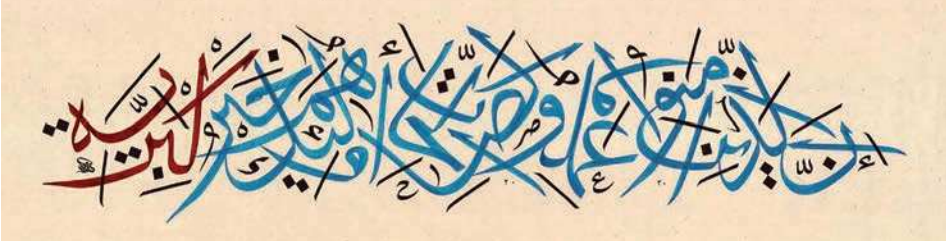 إن الذين آمنوا وعملوا الصالحات أولئك هم خير البرية